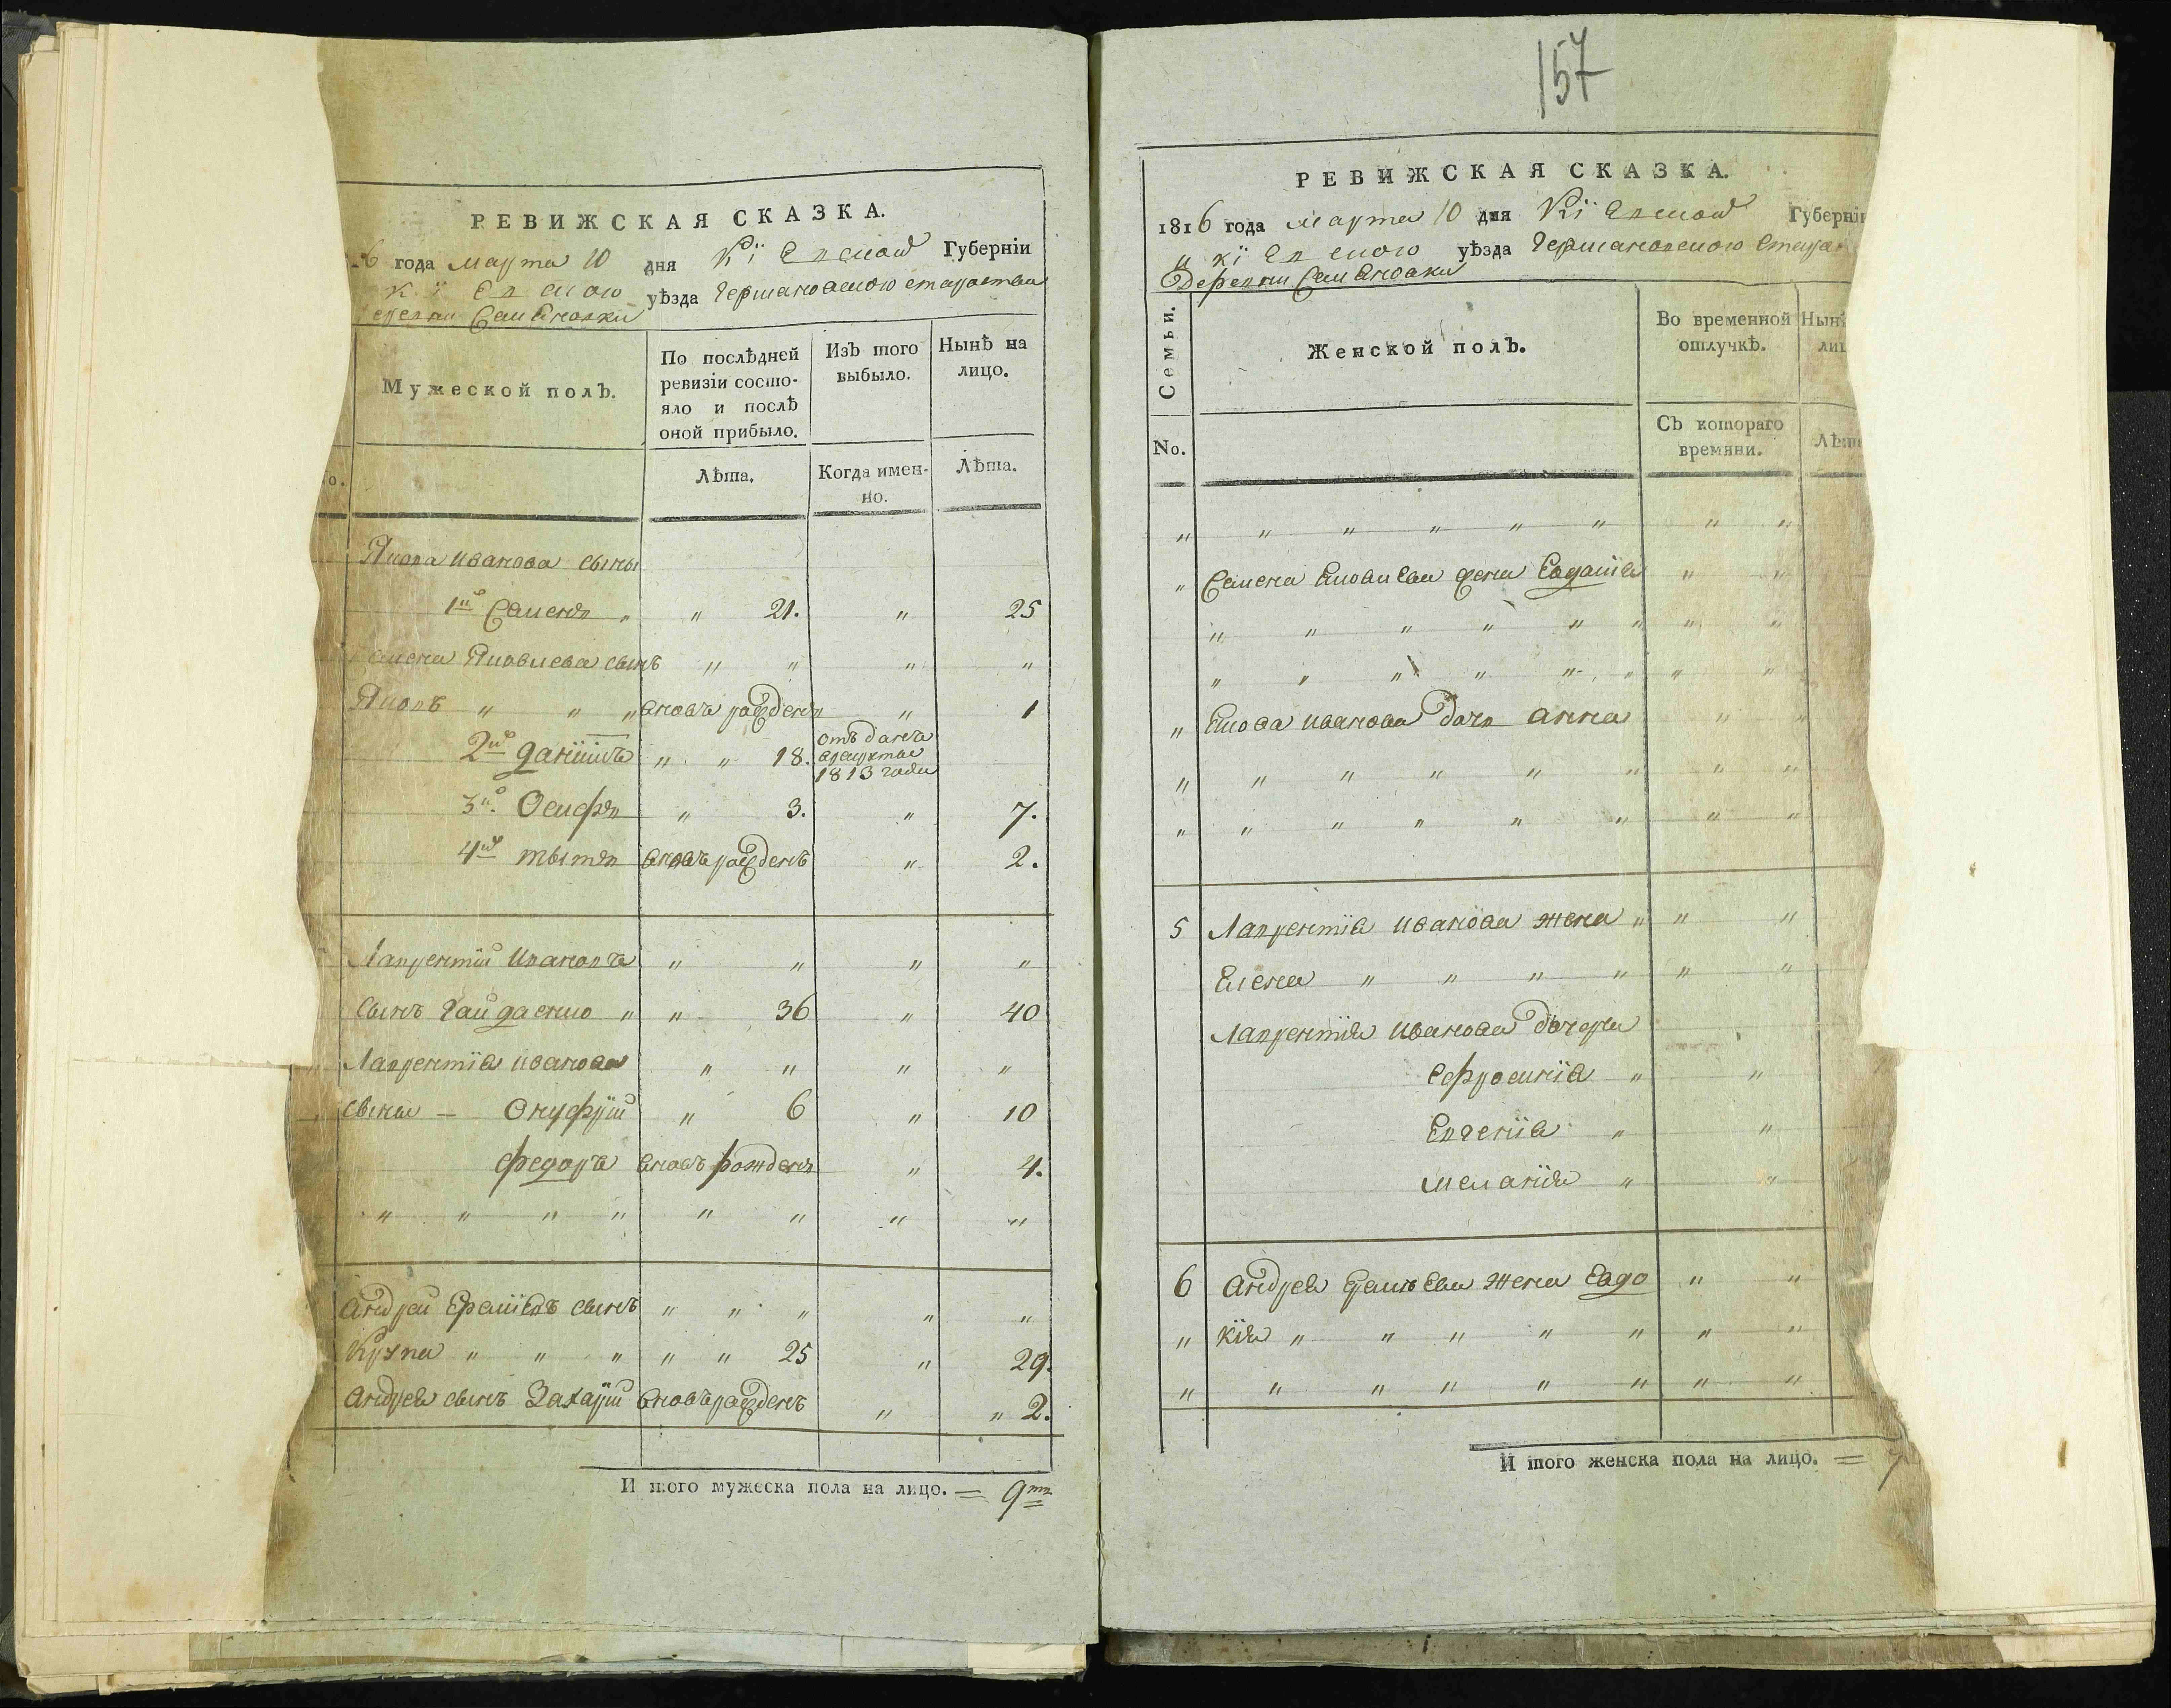 РЕВИЖСКАЯ СКАЗКА.
6 года марта 10 дня Кіевской Губерніи
Кіевского уѣзда Германовского староства
деревни Семеновки
Мужеской полъ.
По послѣдней
ревизіи состо-
яло и послѣ
оной прибыло.
Изъ того
выбыло.
Нынѣ на
лицо.
Лѣта.
Когда имен-
но.
Лѣта.
Якова Иванова сыны
1й Семенъ " " 21. " 25
Семена Яковлева сынъ " " " "
Яковъ " " " вновь рожденъ " 1
2й Даніилъ " " 18. отъ данъ в рекруты 1813 года
3й Осифъ " 3. " 7.
4й Титъ вновь рожденъ " 2.
Лаврентій Ивановъ " " " "
сынъ Гайдаенко " " 36 " 40
Лаврентія Иванова " " " "
сыны — Онуфрій " 6 " 10
Федоръ вновь рожденъ " 4.
" " " " " " " "
Андрей Ереміевъ сынъ " " " " "
Кузпа " " " " " 25 " 29.
Андрея сынъ Захарій вновь рожденъ " " 2.
И того мужеска пола на лицо. = 9ть
157
РЕВИЖСКАЯ СКАЗКА.
1816 года марта 10 дня Кіевской Губерніи
и кіевского уѣзда Германовского Старо
Деревни Семеновки
Семьи.
Женской полъ.
Во временной
отлучкѣ.
Нынѣ
лиц
No.
Съ котораго
времяни.
Лѣт
" " " " " " " "
" Семена Яковлева жена Евдокія " "
" " " " " " " "
" " " " " " " "
" Якова Иванова дочь Анна " "
" " " " " " " "
" " " " " " " "
5 Лаврентія Иванова жена " " "
Елена " " " " " "
Лаврентія Иванова дочери
Ефросинія " "
Евгенія " "
Меланія " "
6 Андрея Ереміева жена Евдо " "
" кія " " " " " " "
" " " " " " " "
И того женска пола на лицо. = 7